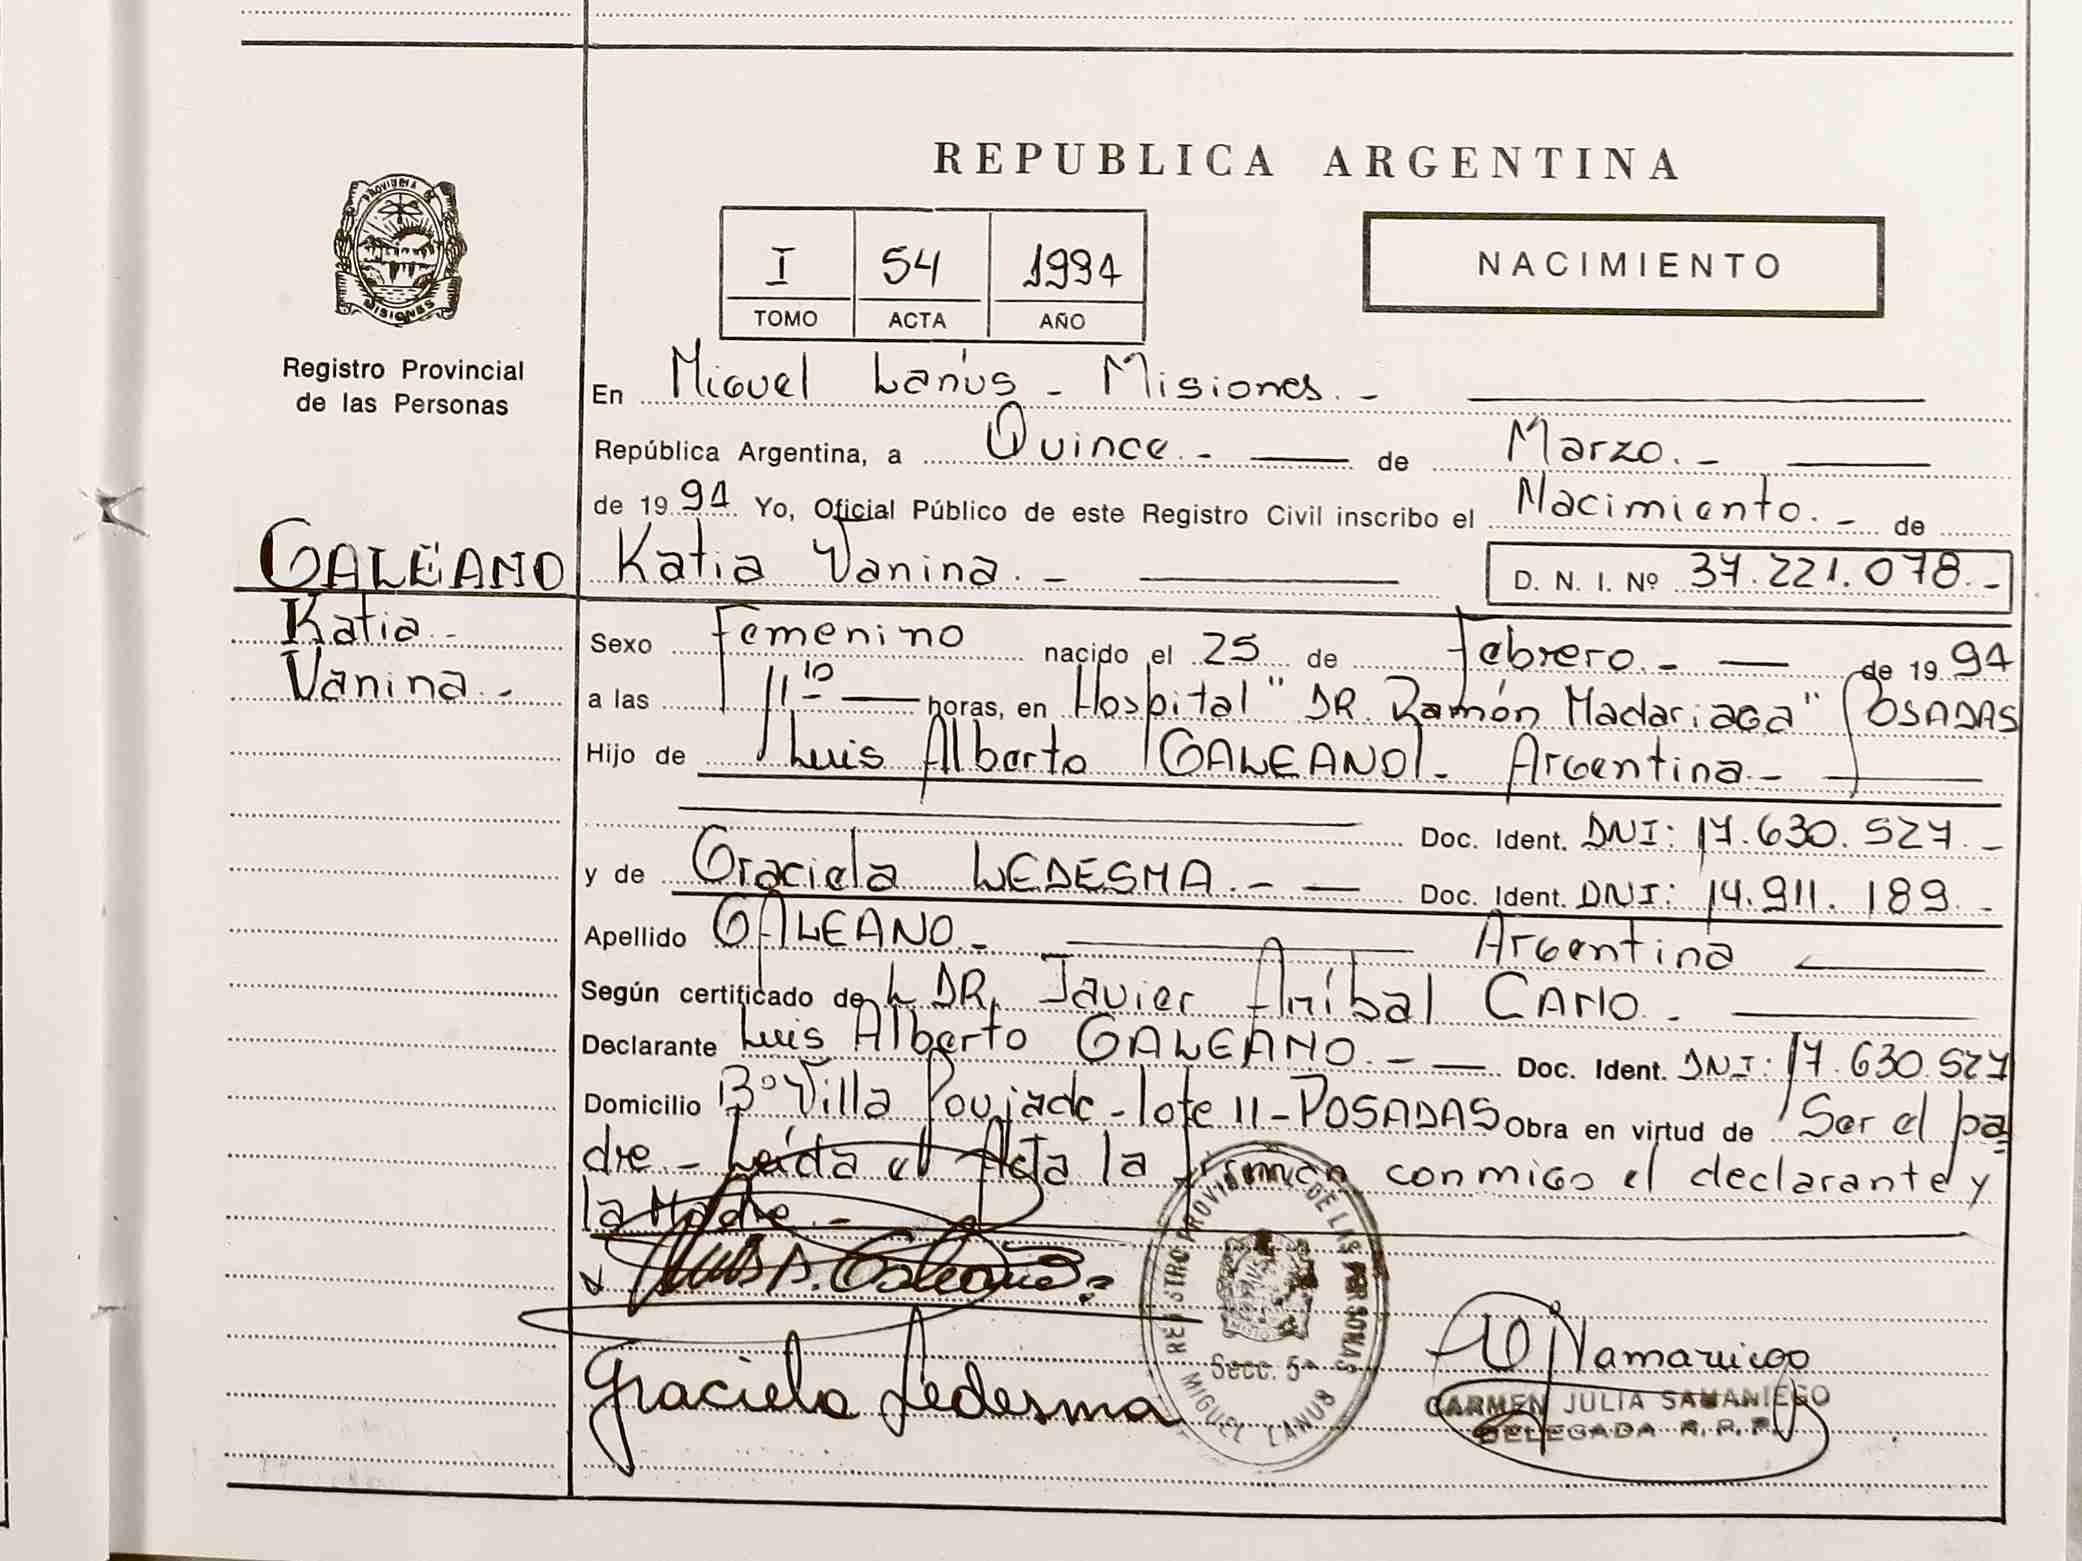 REPUBLICA ARGENTINA
PROVINCIA DE
MISIONES
I 54 1994
TOMO ACTA AÑO
NACIMIENTO
Registro Provincial
de las Personas
En Miguel Lanús - Misiones. -
República Argentina, a Quince. - de Marzo. -
de 1994. Yo, Oficial Público de este Registro Civil inscribo el Nacimiento. - de
GALEANO Katia Vanina. - D. N. I. Nº 37.221.078. -
Katia -
Vanina. -
Sexo Femenino nacido el 25 de Febrero. - de 1994
a las 11 10 horas, en Hospital "DR. Ramón Madariaga" POSADAS
Hijo de Luis Alberto GALEANO. - Argentina. -
Doc. Ident. DNI: 17.630.527. -
y de Graciela LEDESMA. - - Doc. Ident. DNI: 14.911.189. -
Apellido GALEANO. - Argentina
Según certificado de DR. Javier Aníbal CARIO. -
Declarante Luis Alberto GALEANO. - Doc. Ident. DNI: 17.630.527
Domicilio Bº Villa Poujade - lote 11 - POSADAS Obra en virtud de Ser el pa
dre. - Leída el Acta la firman conmigo el declarante y
la Madre. -
Luis A. Galeano
REGISTRO PROVINCIAL DE LAS PERSONAS
Secc. 5ª
MIGUEL LANUS
Graciela Ledesma
CARMEN JULIA SAMANIEGO
DELEGADA R. P. P.